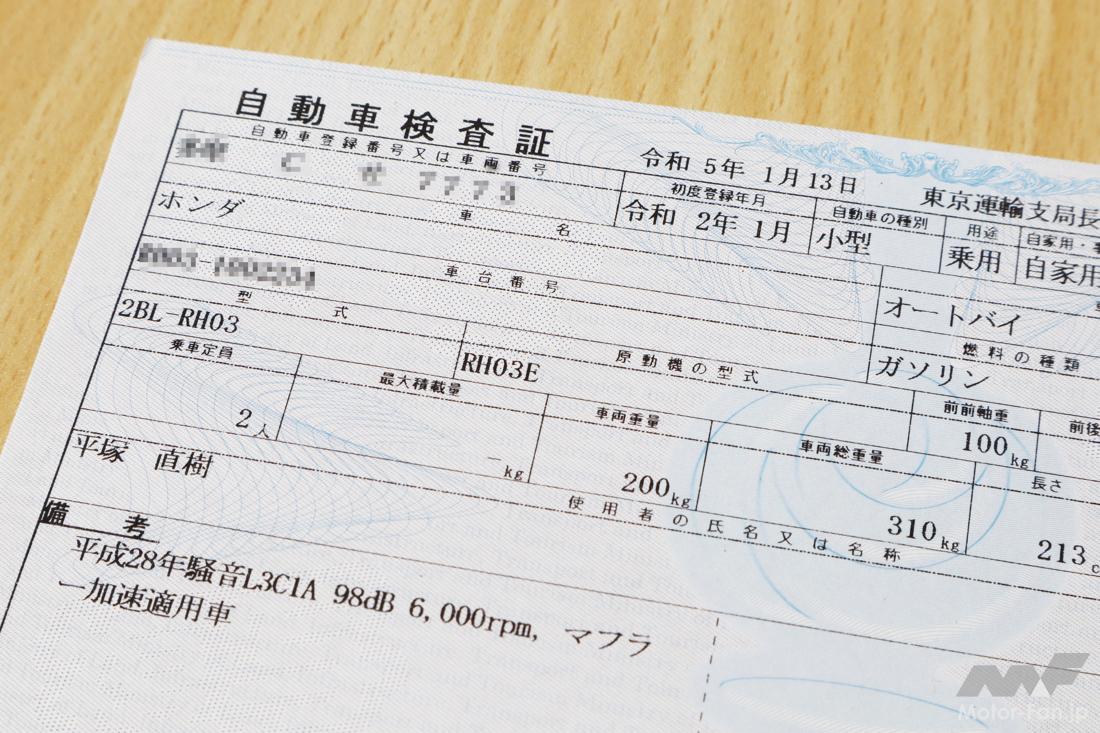 自動車検査証
自動車登録番号又は車両番号
令和 5年 1月13日
東京運輸支局長
7773
初度登録年月
自動車の種別
用途
自家用・事
令和 2年 1月
小型
乗用
自家用
車名
ホンダ
車台番号
オートバイ
型式
2BL-RH03
原動機の型式
RH03E
燃料の種類
ガソリン
乗車定員
2人
最大積載量
－kg
車両重量
200kg
車両総重量
310kg
前前軸重
100kg
前後
長さ
213c
使用者の氏名又は名称
平塚 直樹
備考
平成28年騒音L3C1A 98dB 6,000rpm, マフラ
ー加速適用車
MF
Motor-Fan.jp